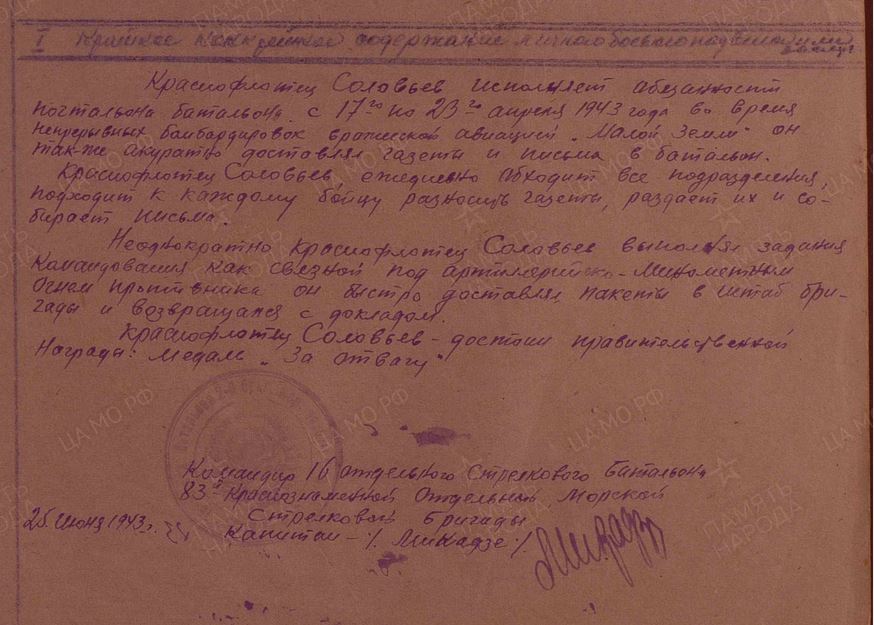 I Краткое конкретное содержание личного боевого подвига или
Краснофлотец Соловьев исполняет абязанности
почтальона батальона. с 17го по 23го апреля 1943 года во время
непрерывных бомбардировок вражеской авиацией „Малой Земли" он
так-же акуратно доставлял газеты и письма в батальон.
Краснофлотец Соловьев ежедневно обходит все подразделения,
подходит к каждому бойцу разносит газеты, раздает их и со-
бирает письма.
Неоднократно краснофлотец Соловьев выполнял задания
Командования как связной под артилерийско-минометным
огнем противника он быстро доставлял пакеты в штаб бри-
гады и возвращался с докладом.
Краснофлотец Соловьев - достоин правительственной
Награды: медаль „За отвагу"
Командир 16 отдельного Стрелкового батальона
83й Краснознаменной Отдельной Морской
Стрелковой бригады
25. Июня 1943 г.
Капитан - /. Микадзе /.
ЦАМО РФ
ПАМЯТЬ НАРОДА